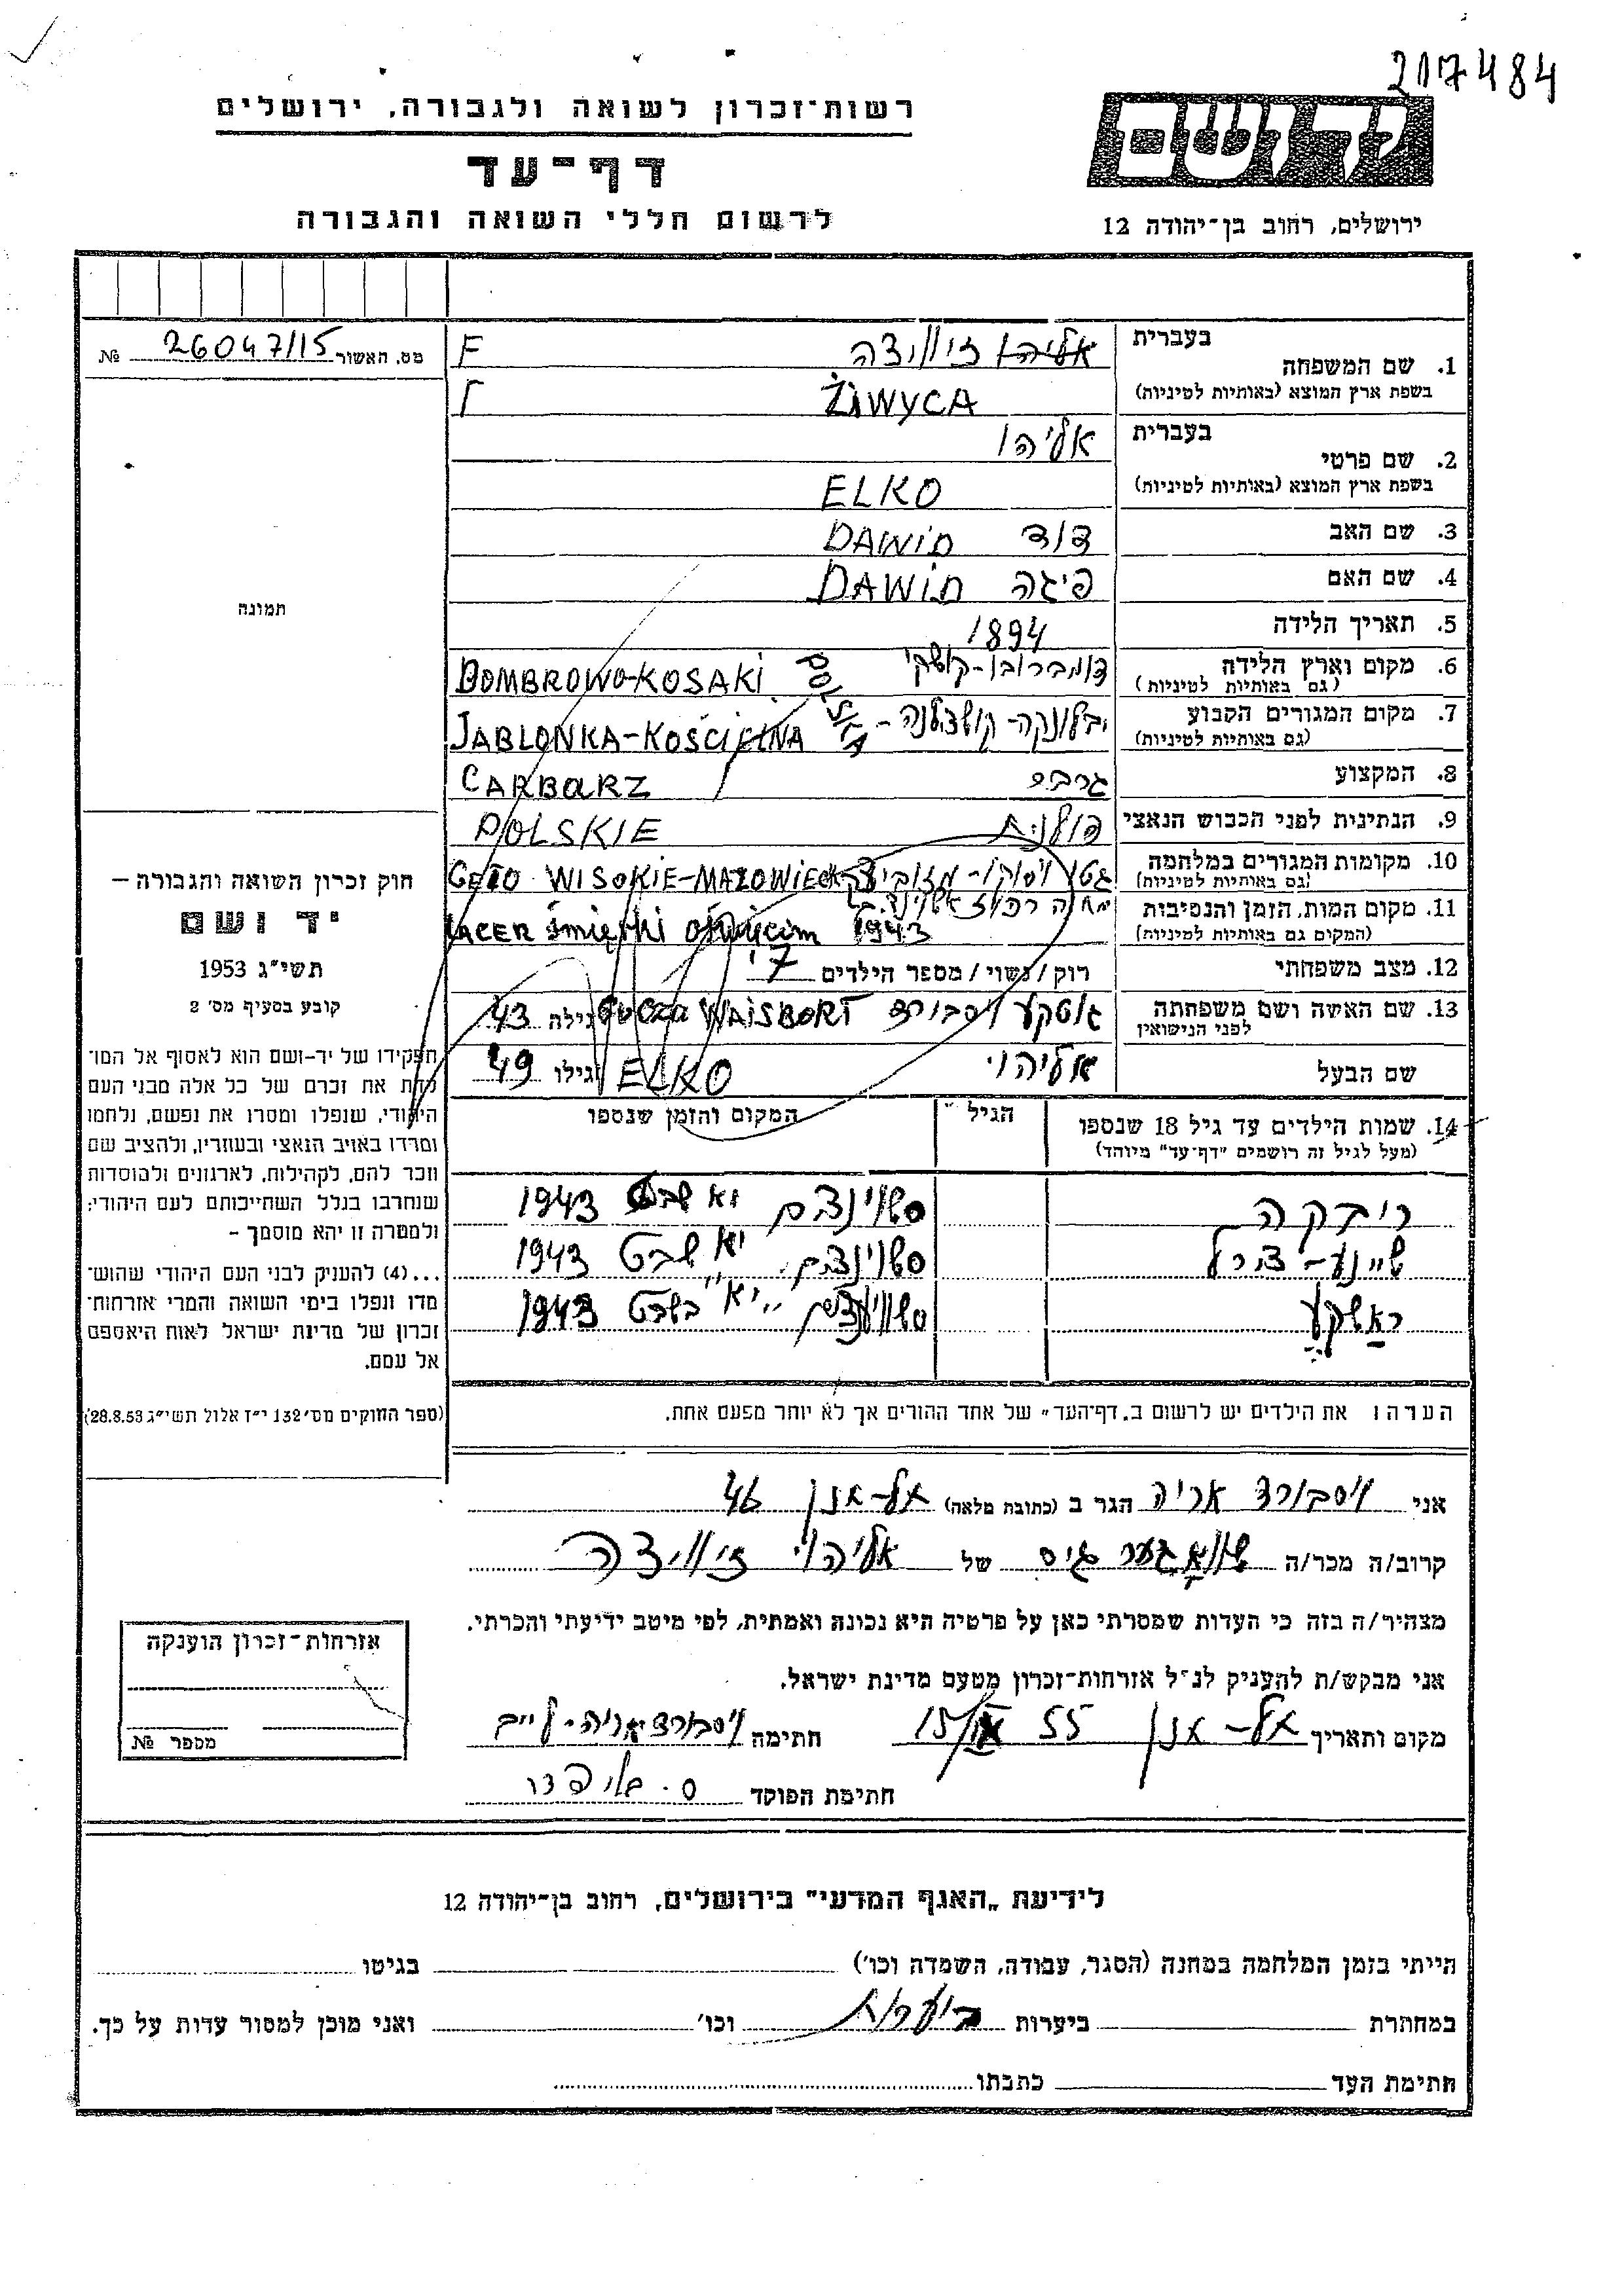 217484
רשות־זכרון לשואה ולגבורה, ירושלים
דף־עד
לרשום חללי השואה והגבורה
ירושלים, רחוב בן־יהודה 12
מס. האשור 26047/15 №
בעברית
1. שם המשפחה
בשפת ארץ המוצא (באותיות לטיניות)
אליהו זיוויצה F
ŻiWYCA
בעברית
2. שם פרטי
בשפת ארץ המוצא (באותיות לטיניות)
אליהו
ELKO
3. שם האב דוד DAWiD
4. שם האם פיגה DAWiD
5. תאריך הלידה 1894
6. מקום וארץ הלידה דומברובו-קוסקי DOMBROWO-KOSAKI POLSKA
(גם באותיות לטיניות)
7. מקום המגורים הקבוע יבלונקה-קושצלנה- JABLONKA-KOŚCiELNA
(גם באותיות לטיניות)
8. המקצוע גרבר CARBARZ
9. הנתינות לפני הכבוש הנאצי פולנית POLSKIE
10. מקומות המגורים במלחמה גטו ויסוקו-מזוביצק GETO WISOKIE-MAZOWIECK
(גם באותיות לטיניות)
11. מקום המות, הזמן והנסיבות
(המקום גם באותיות לטיניות)
LAGER śmierki oświęcim 1943
12. מצב משפחתי רוק/נשוי/מספר הילדים 7
13. שם האשה ושם משפחתה גוטקע ויסבורד WAISBORT גילה 43
לפני הנישואין
שם הבעל אליהו ELKO גילו 49
14. שמות הילדים עד גיל 18 שנספו הגיל המקום והזמן שנספו
(מעל לגיל זה רושמים "דף־עד" מיוחד)
רבקה יא שבט 1943
שיינע-צירל יא שבט 1943
ראשקע "יא" בשבט 1943
הערה: את הילדים יש לרשום ב„דף־העד" של אחד ההורים אך לא יותר מפעם אחת.
תמונה
חוק זכרון השואה והגבורה –
יד ושם
תשי"ג 1953
קובע בסעיף מס' 2
תפקידו של יד־ושם הוא לאסוף אל המו־
לדת את זכרם של כל אלה מבני העם
היהודי, שנפלו ומסרו את נפשם, נלחמו
ומרדו באויב הנאצי ובעוזריו, ולהציב שם
וזכר להם, לקהילות, לארגונים ולמוסדות
שנחרבו בגלל השתייכותם לעם היהודי;
ולמטרה זו יהא מוסמך –
...(4) להעניק לבני העם היהודי שהוש־
מדו ונפלו בימי השואה והמרי אזרחות־
זכרון של מדינת ישראל לאות היאספם
אל עמם.
(ספר החוקים מס' 132 י"ז אלול תשי"ג 28.8.53)
אני ויסבורד אריה הגר ב (כתובת מלאה) אל-אנן 46
קרוב/ה מכר/ה שוואגער גיס של אליהו זיוויצה
מצהיר/ה בזה כי העדות שמסרתי כאן על פרטיה היא נכונה ואמתית, לפי מיטב ידיעתי והכרתי.
אני מבקש/ת להעניק לנ"ל אזרחות־זכרון מטעם מדינת ישראל.
מקום ותאריך אל-אנן 55 חתימה ויסבורד אריה-לייב
חתימת הפוקד
אזרחות־זכרון הוענקה
מספר №
לידיעת „האגף המדעי" בירושלים, רחוב בן־יהודה 12
הייתי בזמן המלחמה במחנה (הסגר, עבודה, השמדה וכו') בגיטו
במחתרת ביערות ביערות וכו' ואני מוכן למסור עדות על כך.
חתימת העד כתבתו